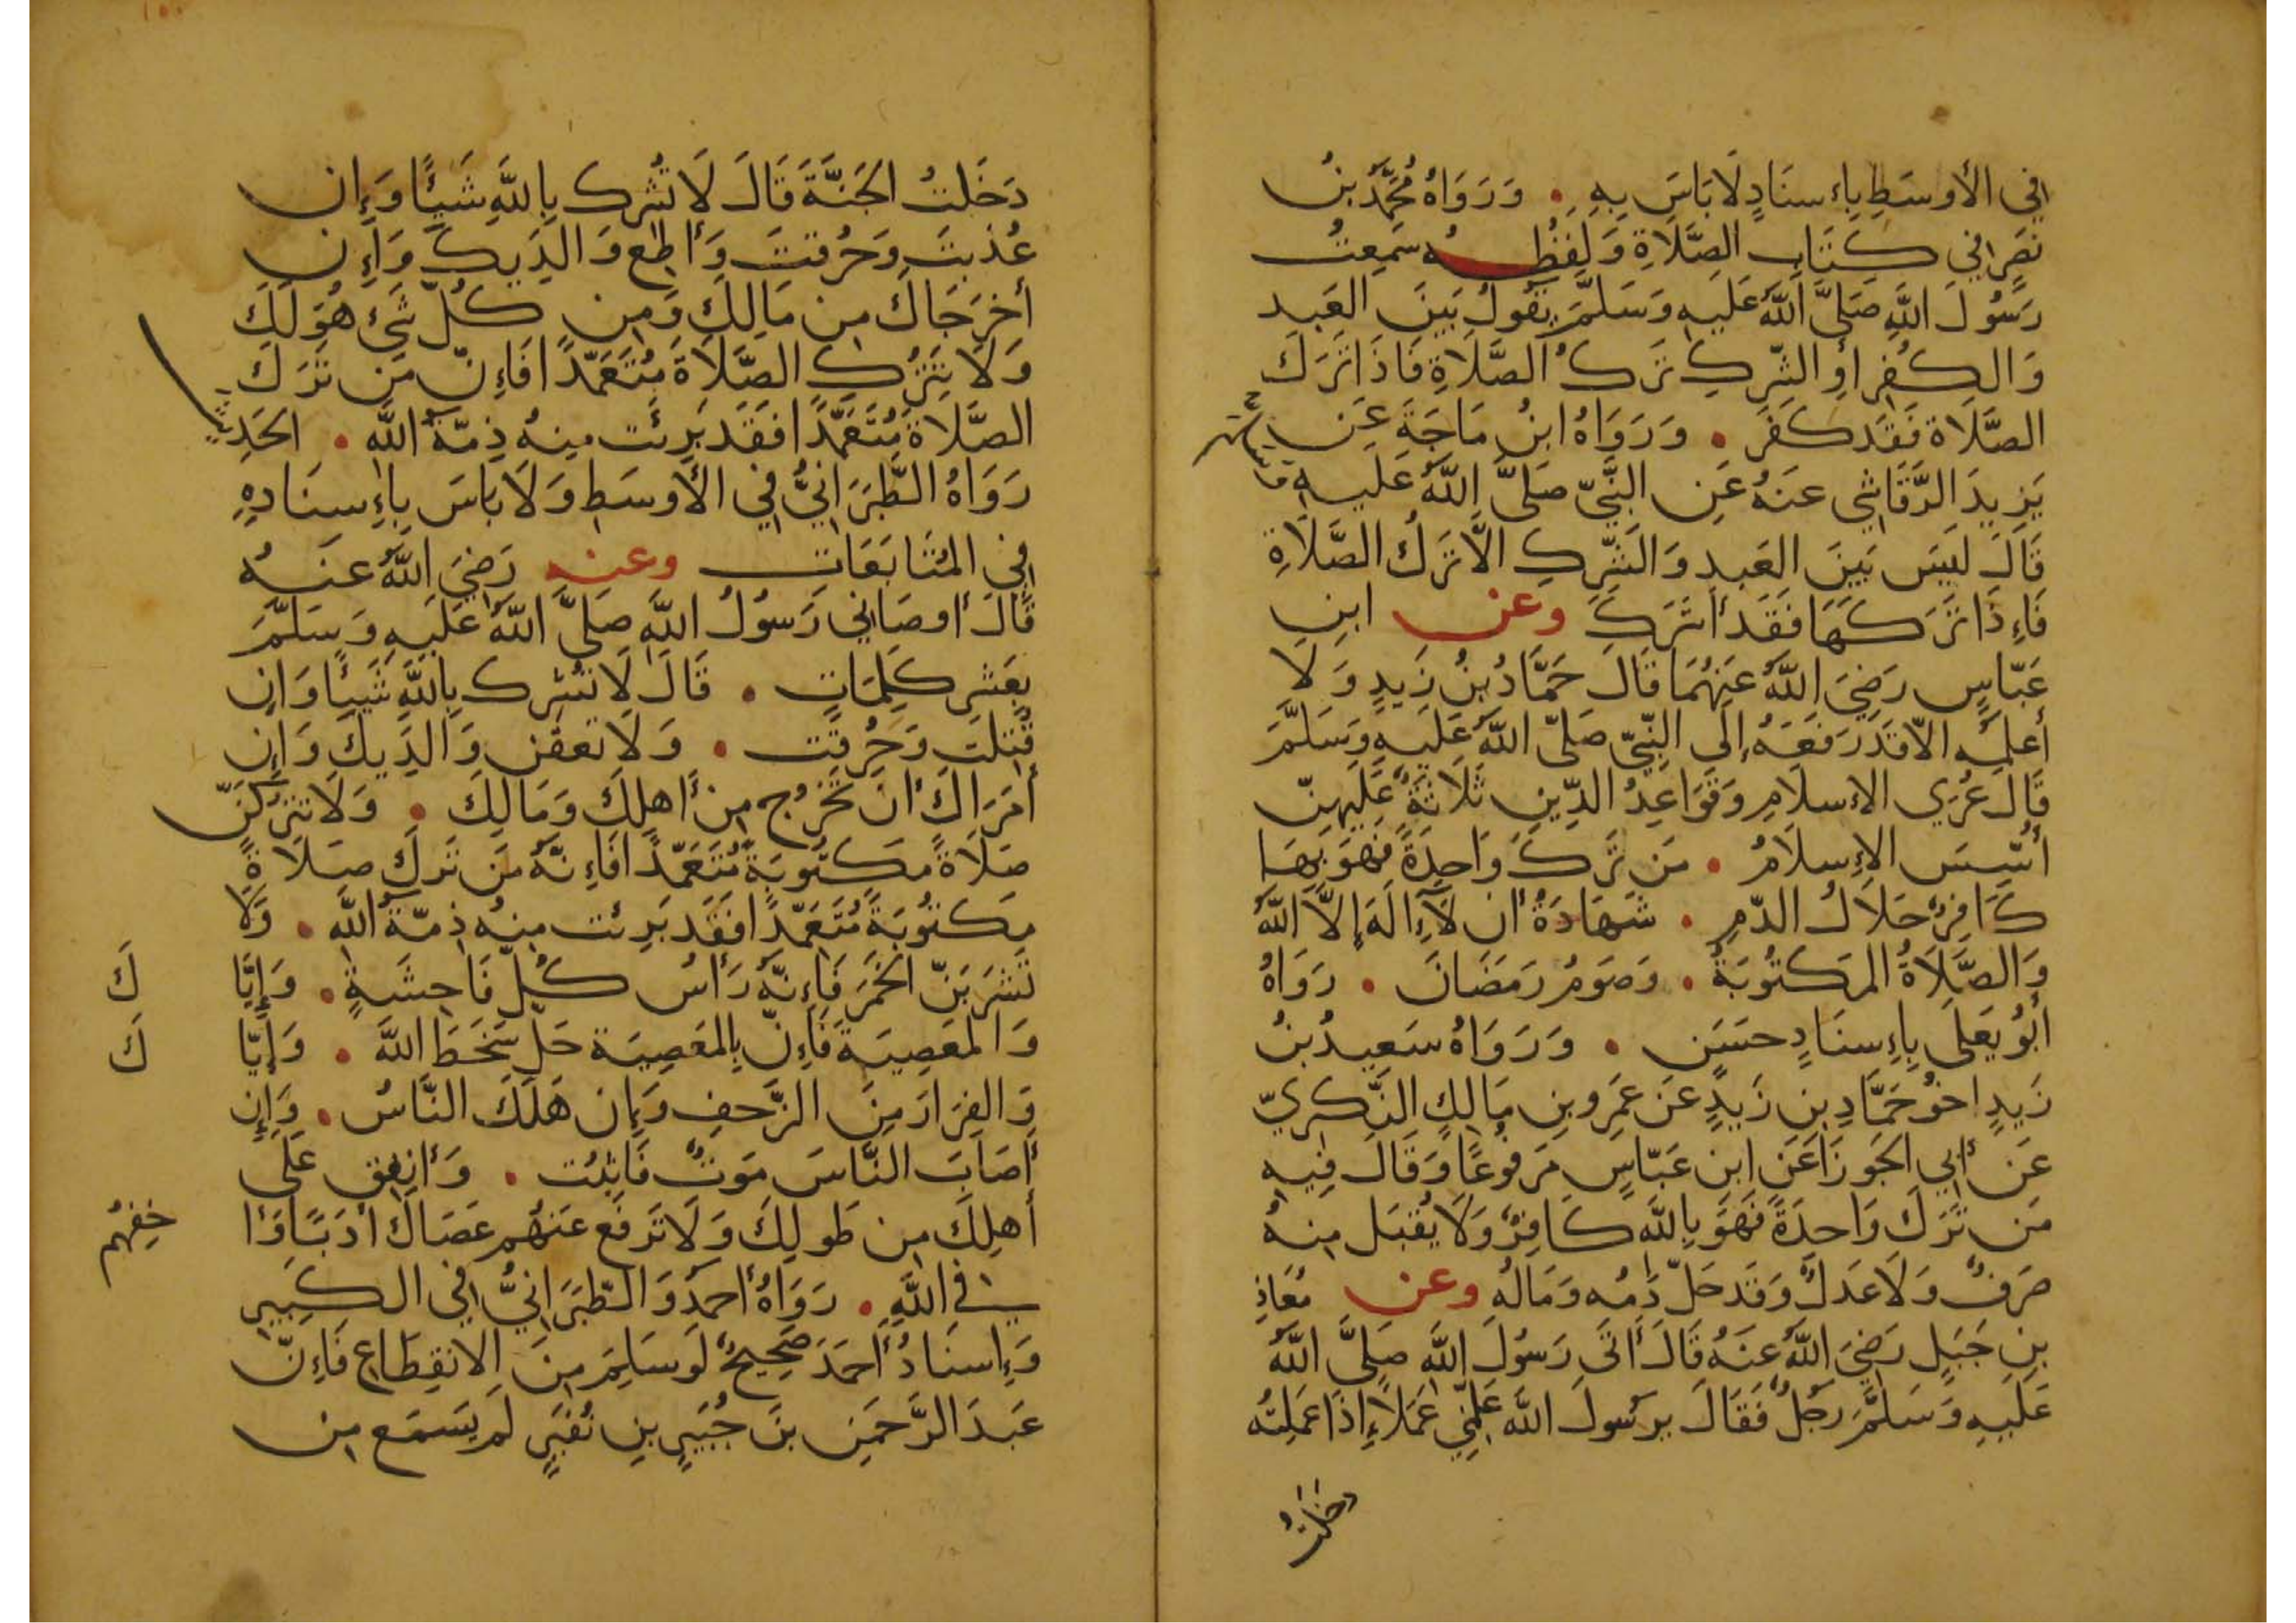 في الأوسَطِ بِاءسنَادٍ لَا بَاسَ بِهِ . وَرَوَاهُ مُحَمَّدُ بنُ
نَصرٍ في كتَابِ الصَّلَاةِ وَلَفظُـه سَمِعتُ
رَسُولَ اللَّهِ صَلَّى اللَّهُ عَلَيهِ وَسَلَّمَ يَقُولُ بَينَ العَبدِ
وَالكُفرِ اوِ الشِّركِ تَركُ الصَّلَاةِ فَاذَا تَرَكَ
الصَّلَاةَ فَقَد كَفَرَ . وَرَوَاهُ ابنُ مَاجَةَ عَن
يَزِيدَ الرَّقَاشِي عَنهُ عَنِ النَّبِيِّ صَلَّى اللَّهُ عَلَيهِ وَسَلَّمَ
قَالَ لَيسَ بَينَ العَبدِ وَالشِّركِ الَّا تَركُ الصَّلَاةِ
فَاءِذَا تَرَكَهَا فَقَد أَشرَكَ وعن ابنِ
عَبَّاسٍ رَضِيَ اللَّهُ عَنهُمَا قَالَ حَمَّادُ بنُ زَيدٍ وَلَا
أَعلَمُه الَّا قَد رَفَعَهُ إِلَى النَّبِيِّ صَلَّى اللَّهُ عَلَيهِ وَسَلَّمَ
قَالَ عُرَى الاءسلَامِ وَقَوَاعِدُ الدِّينِ ثَلَاثَةٌ عَلَيهِنَّ
أُسِّسَ الاءِسلَامُ . مَن تَرَكَ وَاحِدَةً فَهوَ بِهَا
كَافِرٌ حَلَالُ الدَّمِ . شَهَادَةُ أَن لَآ إِلَهَ إِلَّا اللَّهُ
وَالصَّلَاةُ المَكتُوبَةُ . وَصَومُ رَمَضَانَ . رَوَاهُ
أَبُو يَعلَى بِاءِسنَادٍ حَسَنٍ . وَرَوَاهُ سَعِيدُ بنُ
زَيدٍ اخُو حَمَّادِ بنِ زَيدٍ عَن عَمرِو بنِ مَالِكٍ النَّكرِيِّ
عَن أَبِي الجَوزَا عَنِ ابنِ عَبَّاسٍ مَرفُوعًا وَقَالَ فِيهِ
مَن تَرَكَ وَاحِدَةً فَهوَ بِاللَّهِ كَافِرٌ وَلَا يُقبَل مِنهُ
صَرفٌ وَلَا عَدلٌ وَقَد حَلَّ دَمُه وَمَالُهُ وعن مُعَاذِ
بنِ جَبَلٍ رَضِيَ اللَّهُ عَنهُ قَالَ أَتَى رَسُولَ اللَّهِ صَلَّى اللَّهُ
عَلَيهِ وَسَلَّمَ رَجُلٌ فَقَالَ يرسُولَ اللَّهِ عَلِّمنِي عَمَلًا إِذَا عَمِلتُه
دخلتُ
دَخَلتُ الجَنَّةَ قَالَ لَا تُشرِك بِاللَّهِ شَيئًا وَإِن
عُذِّبتَ وَحُرِّقتَ وَأَطِع وَالِدَيكَ وَإِن
أَخرَجَاكَ مِن مَالِكَ وَمِن كُلِّ شَيءٍ هُوَ لَكَ
وَلَا تَترُكِ الصَّلَاةَ مُتَعَمِّدًا فَاءِنَّ مَن تَرَكَ
الصَّلَاةَ مُتَعَمِّدًا فَقَد بَرِئَت مِنهُ ذِمَّةُ اللَّهِ . الحَدِيثَ
رَوَاهُ الطَّبَرَانِيُّ فِي الأَوسَطِ وَلَا بَاسَ بِاءِسنَادِهِ
فِي المُتَابَعَاتِ وعنه رَضِيَ اللَّهُ عَنهُ
قَالَ أَوصَانِي رَسُولُ اللَّهِ صَلَّى اللَّهُ عَلَيهِ وَسَلَّمَ
بِعَشرِ كَلِمَاتٍ . قَالَ لَا تُشرِك بِاللَّهِ شَيئًا وَانِ
قُتِلتَ وَحُرِّقتَ . وَلَا تَعُقَّنَّ وَالِدَيكَ وَإِن
أَمَرَاكَ أَن تَخرُجَ مِن أَهلِكَ وَمَالِكَ . وَلَا تَترُكَنَّ
صَلَاةً مَكتُوبَةً مُتَعَمِّدًا فَاءِنَّهُ مَن تَرَكَ صَلَاةً
مَكتُوبَةً مُتَعَمِّدًا فَقَد بَرِئَت مِنهُ ذِمَّةُ اللَّهِ . وَلَا
تَشرَبَنَّ الخَمرَ فَاءِنَّهُ رَأسُ كُلِّ فَاحِشَةٍ . وَإِيَّاكَ
وَالمَعصِيَةَ فَاءِنَّ بِالمَعصِيَةِ حَلَّ سَخَطُ اللَّهِ . وَإِيَّاكَ
وَالفِرَارَ مِنَ الزَّحفِ وَإِن هَلَكَ النَّاسُ . وَإِن
أَصَابَ النَّاسَ مَوتٌ فَاثبُت . وَأَنفِق عَلَى
أَهلِكَ مِن طَولِكَ وَلَا تَرفَع عَنهُم عَصَاكَ أَدَبًا وَأَخِفهُم
فِي اللَّهِ . رَوَاهُ أَحمَدُ وَالطَّبَرَانِيُّ فِي الكَبِيرِ
وَإِسنَادُ أَحمَدَ صَحِيحٌ لَو سَلِمَ مِنَ الِانقِطَاعِ فَاءِنَّ
عَبدَ الرَّحمَنِ بنَ جُبَيرِ بنِ نُفَيرٍ لَم يَسمَع مِن